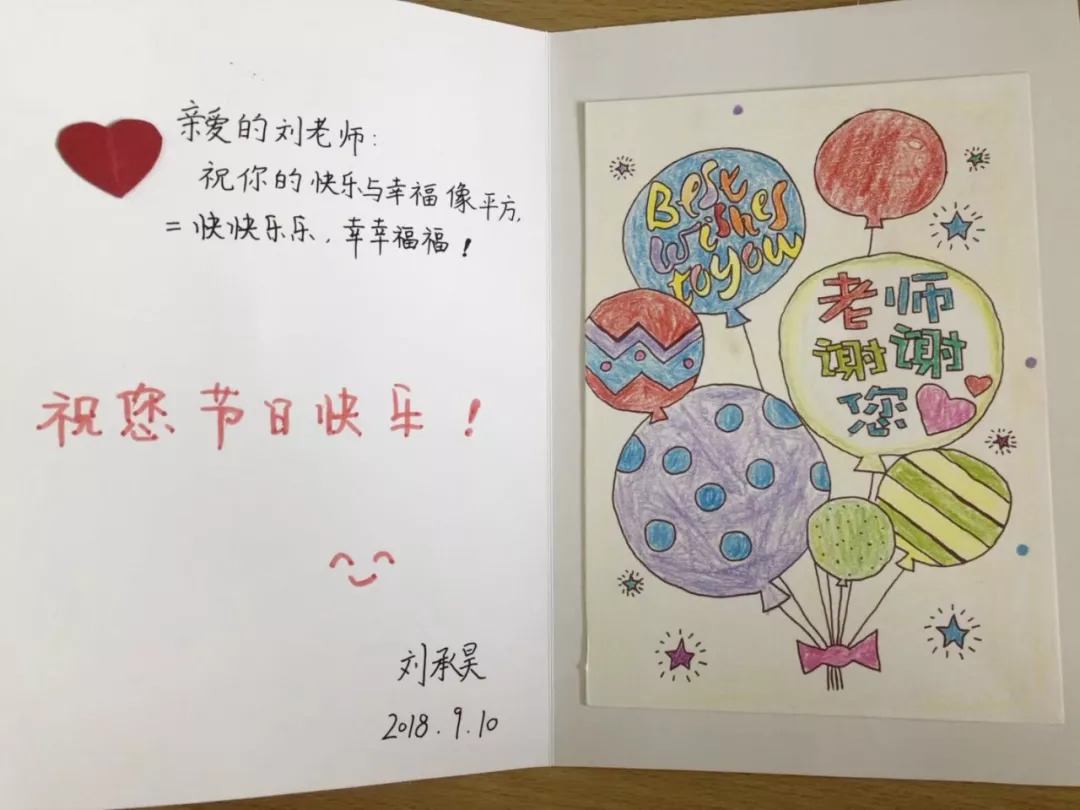 亲爱的刘老师:
祝你的快乐与幸福像平方,
=快快乐乐,幸幸福福!
祝您节日快乐!
刘承昊
2018.9.10
Best
wishes
to you
老师
谢谢
您